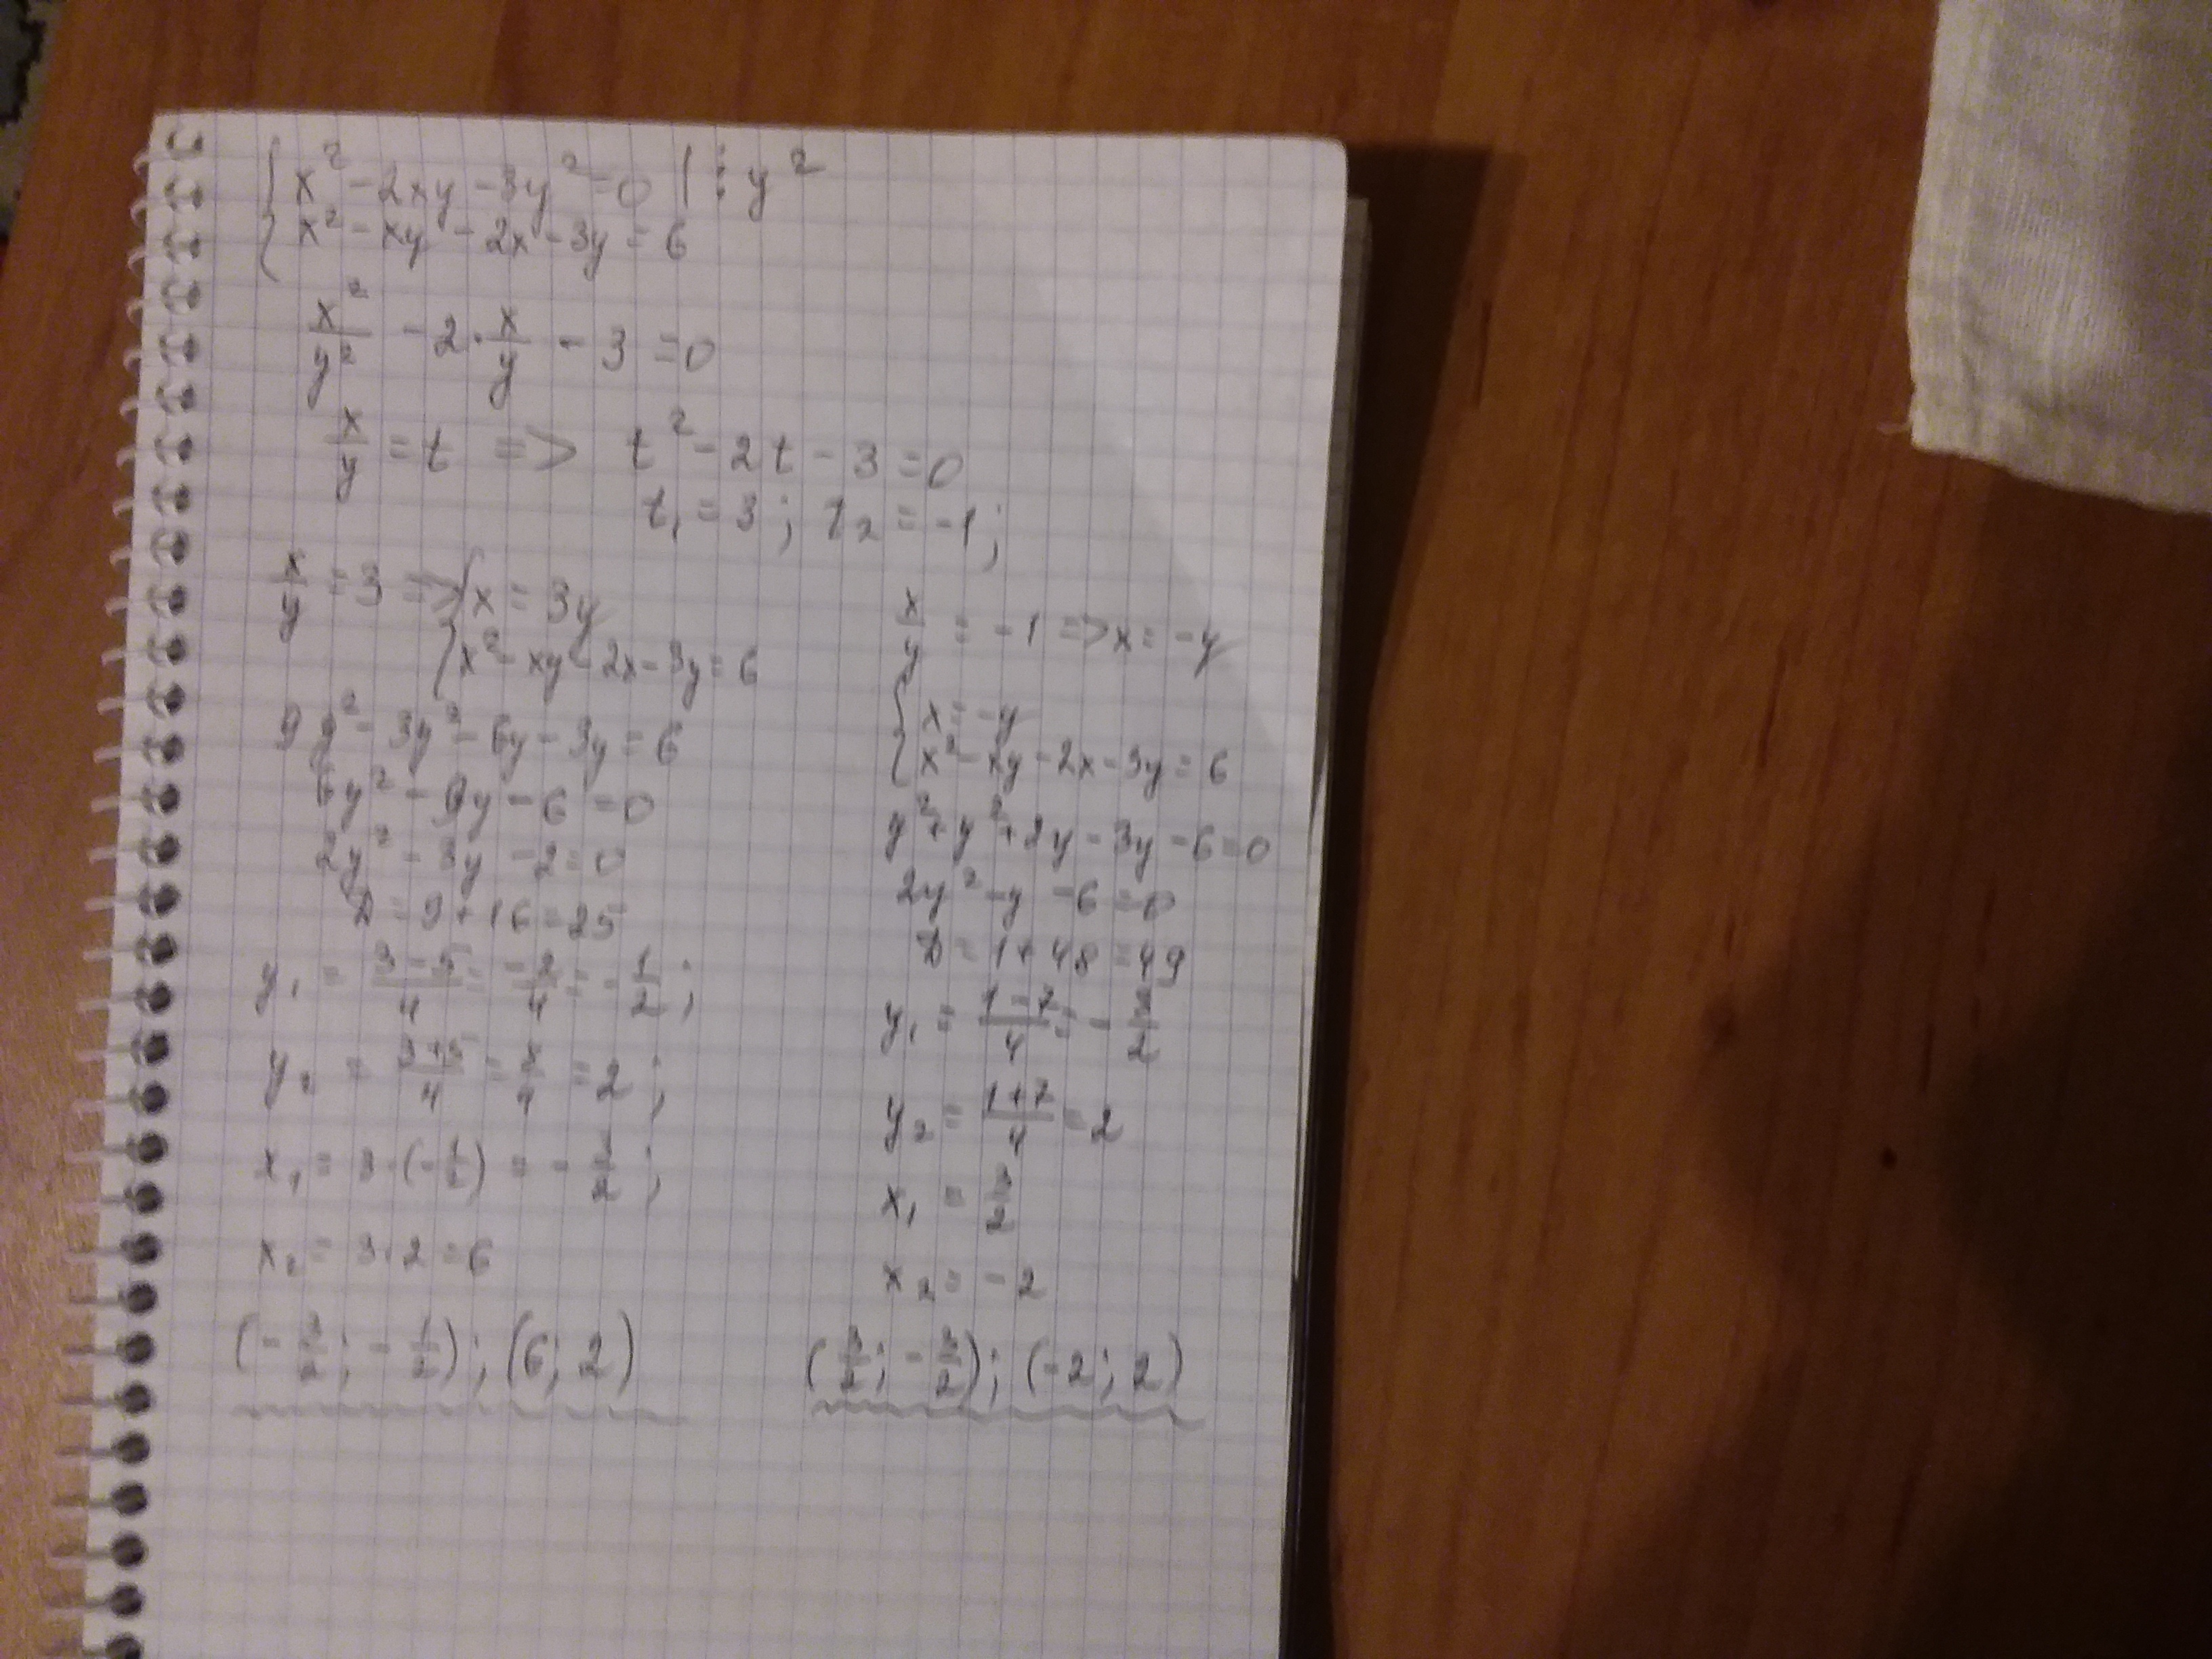 { x² - 2xy - 3y² = 0 | : y²
{ x² - xy - 2x - 3y = 6
x²/y² - 2 · x/y - 3 = 0
x/y = t => t² - 2t - 3 = 0
t₁ = 3; t₂ = -1;
x/y = 3 => { x = 3y
{ x² - xy - 2x - 3y = 6
9y² - 3y² - 6y - 3y = 6
6y² - 9y - 6 = 0
2y² - 3y - 2 = 0
D = 9 + 16 = 25
y₁ = (3 - 5)/4 = -2/4 = -1/2;
y₂ = (3+5)/4 = 8/4 = 2;
x₁ = 3 · (-1/2) = -3/2;
x₂ = 3 · 2 = 6
(-3/2; -1/2); (6; 2)
x/y = -1 => x = -y
{ x = -y
{ x² - xy - 2x - 3y = 6
y² + y² + 2y - 3y - 6 = 0
2y² - y - 6 = 0
D = 1 + 48 = 49
y₁ = (1 - 7)/4 = -3/2
y₂ = (1+7)/4 = 2
x₁ = 3/2
x₂ = -2
(3/2; -3/2); (-2; 2)